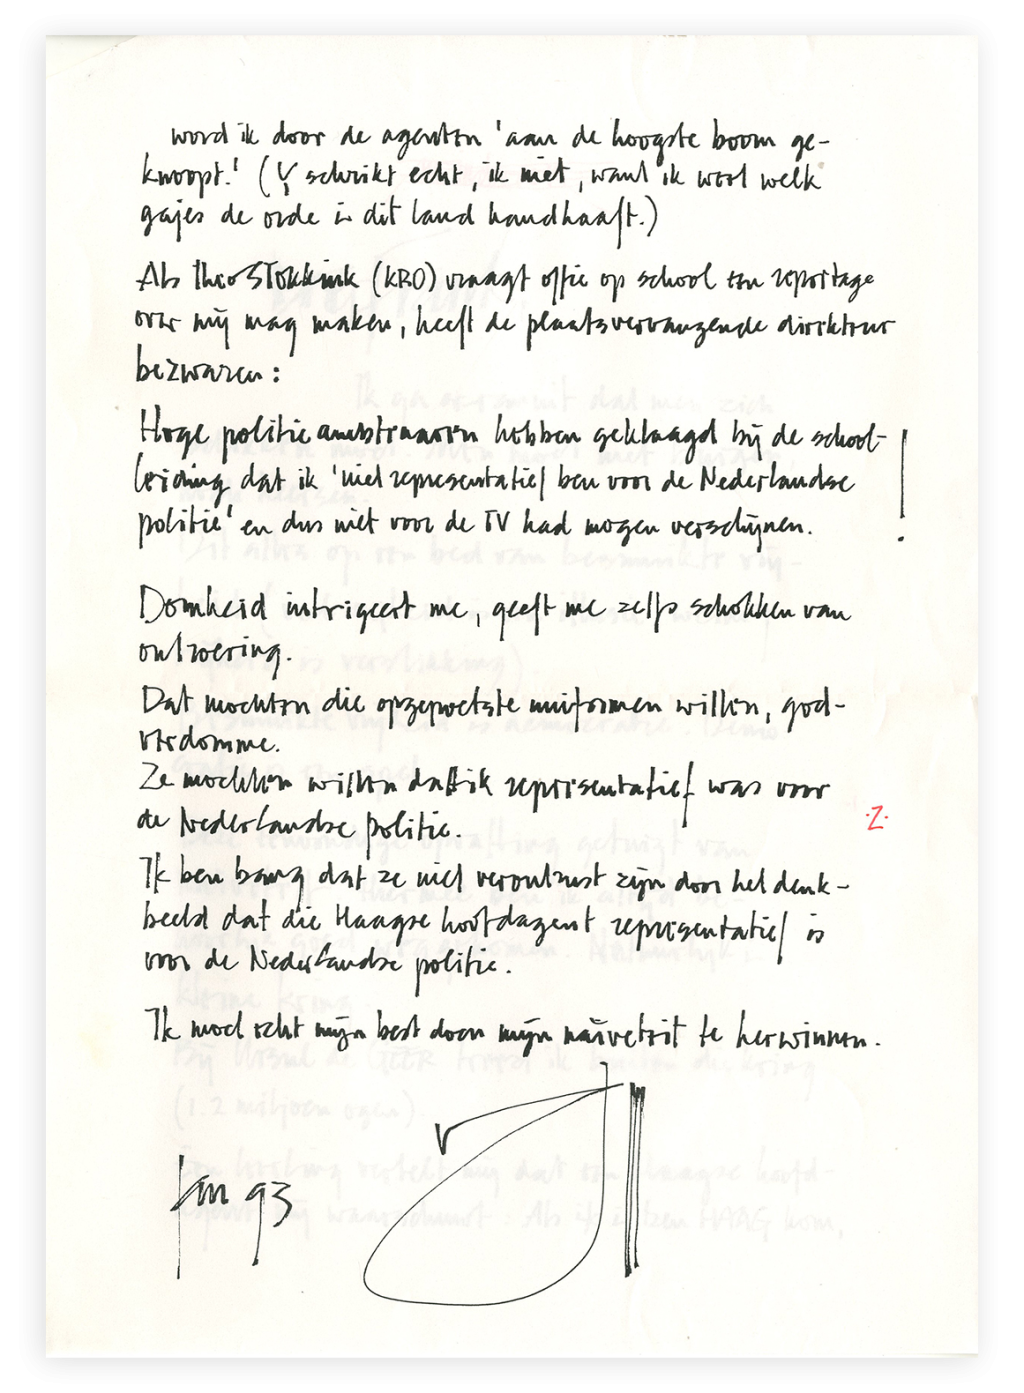 word ik door de agenten 'aan de hoogste boom ge-
knoopt.' ( schrikt echt, ik niet, want ik weet welk
gajes de orde in dit land handhaaft.)
Als Theo STOKKINK (KRO) vraagt of ie op school een reportage
over mij mag maken, heeft de plaatsvervangende direkteur
bezwaren:
Hoge politieambtenaren hebben geklaagd bij de school-
leiding dat ik 'niet representatief ben voor de Nederlandse
politie' en dus niet voor de TV had mogen verschijnen. !
Domheid intrigeert me, geeft me zelfs schokken van
ontroering.
Dat mochten die opgepoetste uniformen willen, god-
verdomme.
Ze mochten willen dat ik representatief was voor
de Nederlandse politie.
.2.
Ik ben bang dat ze niet verontrust zijn door het denk-
beeld dat die Haagse hoofdagent representatief is
voor de Nederlandse politie.
Ik moet echt mijn best doen mijn naïveteit te herwinnen.
jan 93